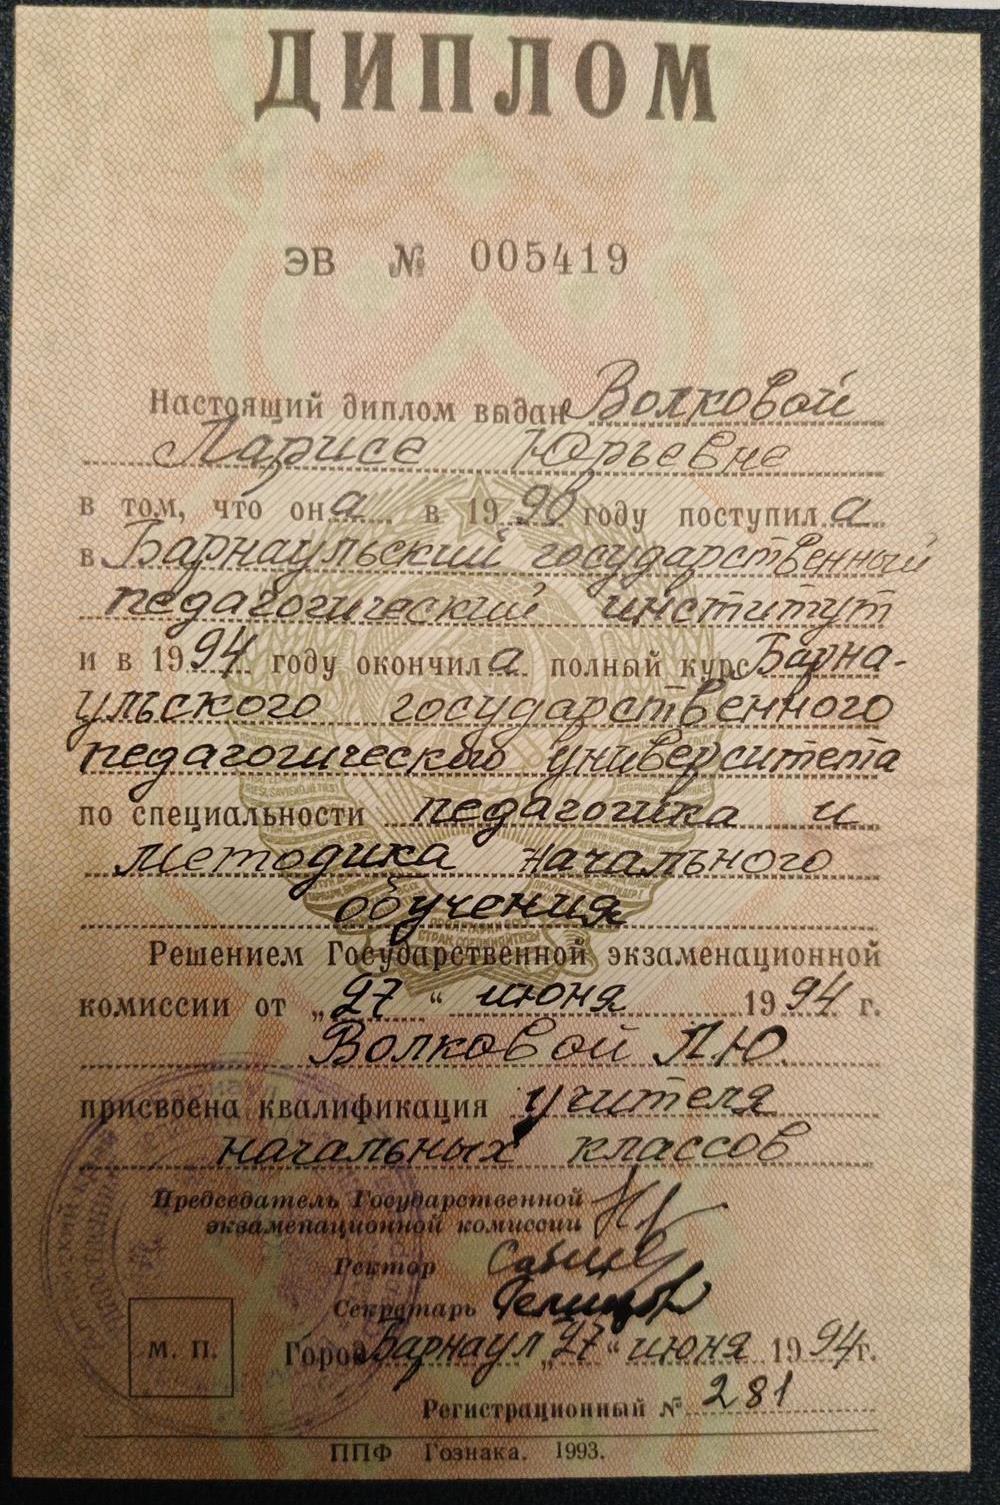 ДИПЛОМ
ЭВ № 005419
Настоящий диплом выдан Волковой
Ларисе Юрьевне
в том, что она в 1990 году поступила
в Барнаульский государственный
педагогический институт
и в 1994 году окончила полный курс Барна-
ульского государственного
педагогического университета
по специальности педагогика и
методика начального
обучения
Решением Государственной экзаменационной
комиссии от „27“ июня 1994 г.
Волковой Л.Ю.
присвоена квалификация учителя
начальных классов
Председатель Государственной
экзаменационной комиссии
Ректор
Секретарь
М. П.
Город Барнаул „27“ июня 1994г.
Регистрационный № 281
ППФ Гознака. 1993.